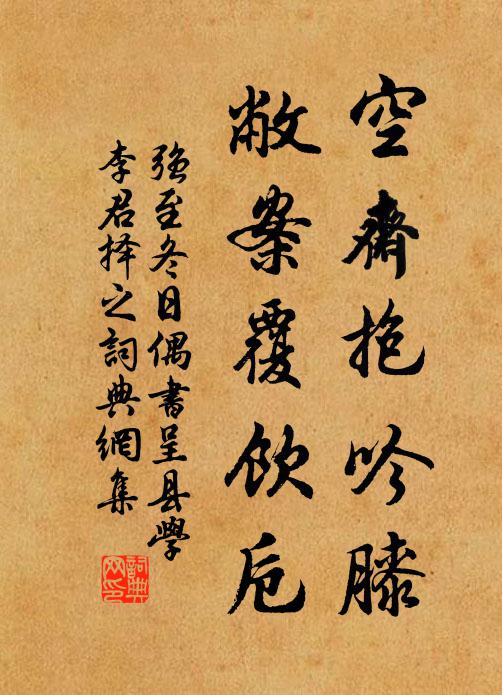 空齋抱吟膝
敝案覆飲卮
強至冬日偶書呈县學
李君择之詞典網集
詞典网印